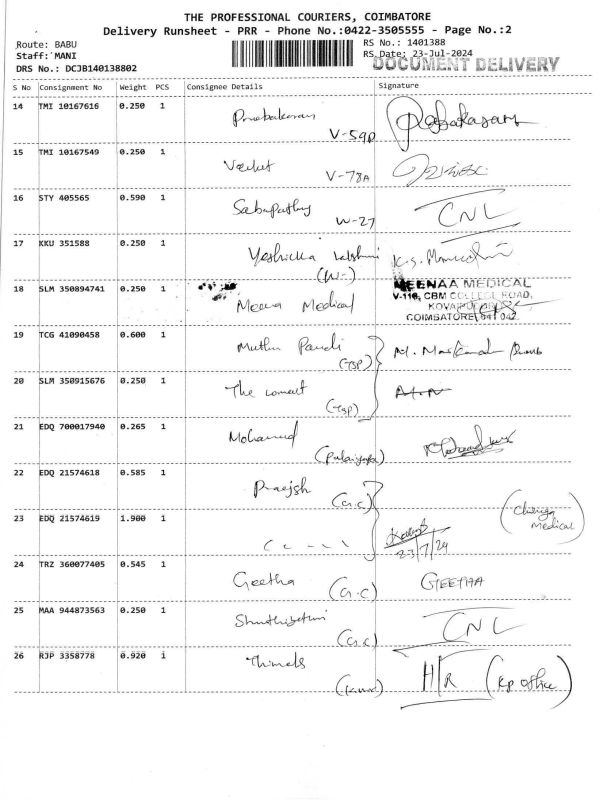 THE PROFESSIONAL COURIERS, COIMBATORE
Delivery Runsheet - PRR - Phone No.:0422-3505555 - Page No.:2
Route: BABU RS No.: 1401388
Staff: MANI RS Date: 23-Jul-2024
DRS No.: DCJB140138802 DOCUMENT DELIVERY
S No Consignment No Weight PCS Consignee Details Signature
14 TMI 10167616 0.250 1
V-59D
15 TMI 10167549 0.250 1
V-78A
16 STY 405565 0.590 1 Sabapathy W-27 CNL
17 KKU 351588 0.250 1
18 SLM 350894741 0.250 1 Meena Medical
MEENAA MEDICAL
V-116, CBM COLLEGE ROAD,
COIMBATORE 641 042
19 TCG 41090458 0.600 1 Muthu Pandi
(TSP)
20 SLM 350915676 0.250 1 The
(TSP)
21 EDQ 700017940 0.265 1 Mohamed
22 EDQ 21574618 0.585 1
(G.C)
23 EDQ 21574619 1.900 1
(Chinga Medical)
23/7/24
24 TRZ 360077405 0.545 1 Geetha GEETHA
(G.C)
25 MAA 944873563 0.250 1 CNL
(G.C)
26 RJP 3358778 0.920 1 H/R (Kp office)